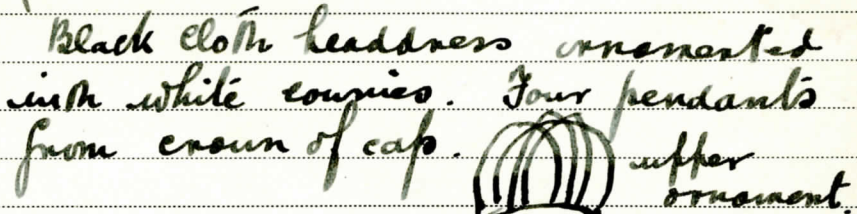 Black cloth headdress ornamented
with white cowries. Four pendants
from crown of cap.
upper
ornament.